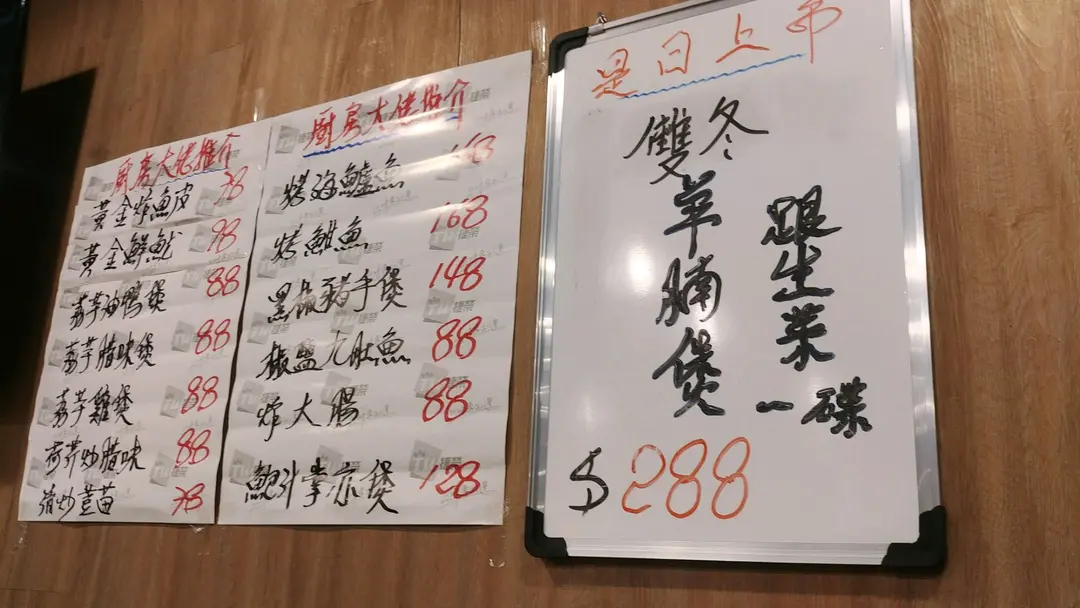 厨房大佬推介
黃金炸魚皮 78
黃金鮮魷 98
荔芋油鴨煲 88
荔芋腊味煲 88
荔芋雞煲 88
荷芹炒腊味 88
清炒荳苗 78
厨房大佬推介
烤海鱸魚 168
烤魽魚 168
黑椒豬手煲 148
椒鹽九肚魚 88
炸大腸 88
鮑汁掌亦煲 128
是日上市
雙冬
羊腩煲
跟生菜
一碟
$288